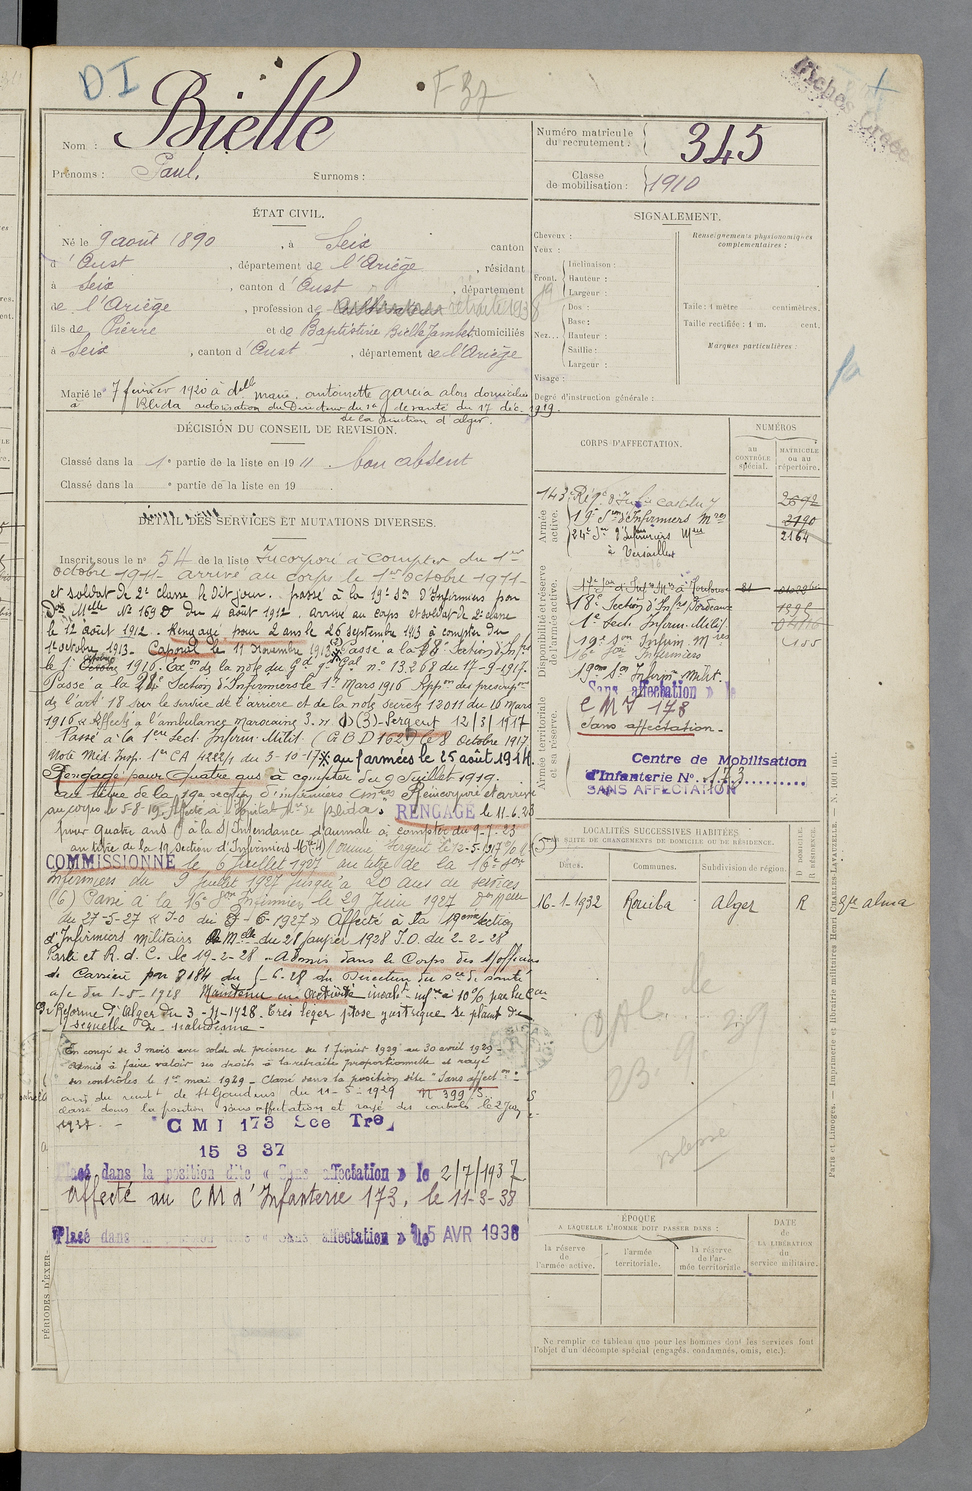 DI
F 37
Fiches Créée
Nom : Bielle
Prénoms : Paul. Surnoms :
Numéro matricule du recrutement : 345
Classe de mobilisation : 1910
ÉTAT CIVIL.
Né le 9 août 1890, à Seix canton
d'Oust, département de l'Ariège, résidant
à Seix, canton d'Oust, département
de l'Ariège, profession de retraité 1938
fils de Pierre et de Baptistine Bielle Jambet domiciliés
à Seix, canton d'Oust, département de l'Ariège
Marié le 7 février 1920 à delle marie, antoinette garcia alors domiciliée
à Blida autorisation du Directeur du Sce de santé du 17 déc. 1919
de la division d'alger.
DÉCISION DU CONSEIL DE REVISION.
Classé dans la 1e partie de la liste en 1911. bon absent
Classé dans la e partie de la liste en 19
DÉTAIL DES SERVICES ET MUTATIONS DIVERSES.
Inscrit sous le no 54 de la liste Incorporé à compter du 1er
octobre 1911 arrivé au corps le 1er octobre 1911
et soldat de 2e classe le dit jour. passé à la 19e Son d'Infirmiers par
Don Melle No 169 D du 4 août 1912. arrivé au corps et soldat de 2e classe
le 12 août 1912. Rengagé pour 2 ans le 26 septembre 1913 à compter du
1er octobre 1913. Caporal le 11 novembre 1913 Passé à la 18e Section d'Infrs
le 1er 1916. de la note du no 13268 du 17-9-1917.
Passé à la 24e Section d'Infirmiers le 1er Mars 1916 Appon des prescripons
de l'art 18 sur le service de l'arrière et de la note secrète 12011 du 16 Mars
1916 Affecté à l'ambulance marocaine 3. Sergent 12/3/1917
Passé à la 1ere Sect. Infirm. Milit. G B D 162D le 8 Octobre 1917
Note Méd. Insp. 1er CA 4222/1 du 3-10-17 aux armées le 25 août 1914.
Rengagé pour Quatre ans à compter du 9 Juillet 1919.
au titre de la 19e section d'infirmiers mres Réincorporé et arrivé
au corps le 5-8-19. Affecté à l'hôpital Mre de Blida. RENGAGÉ le 11-6-23
pour quatre ans à la S/Intendance d'aumale à compter du 9-7-23
au titre de la 19 section d'Infirmiers
COMMISSIONNÉ le 6 Juillet 1927 au titre de la 16e Son
Infirmiers du 9 Juillet 1927 jusqu'à 20 ans de services
(6) Passé à la 16e Son Infirmier le 29 Juin 1927 Don Melle
du 27-5-27 « J.O du 9-6-1927 » Affecté à la 19eme section
d'Infirmiers militaires D Melle du 21 Janvier 1928 J.O. du 2-2-28
Parti et R. d. C. le 19-2-28 - Admis dans le Corps des s/officiers
de Carrière par 8184 du 6-28 du Directeur du sce de santé
a/c du 1-5-1928 Maintenu en activité invalté infre à 10% par la Con
de Réforme d'Alger du 3-11-1928. Très léger ptose gastrique se plaint de
séquelle de paludisme -
En congé de 3 mois avec solde de présence du 1 Février 1929 au 30 avril 1929 -
Admis à faire valoir ses droits à la retraite proportionnelle et rayé
des contrôles le 1er mai 1929 - Classé dans la position dite "Sans affecton"
avis du recrut de St Gaudens du 11-5-1929 N 399/S.
classé dans la position sans affectation et rayé des contrôles le 2 Juil
1937. -
CMI 173 Sce Tre
15 3 37
Placé dans la position dite « Sans affectation » le 2/7/1937
affecté au CM d'Infanterie 173, le 11-3-38
Placé dans la position dite « Sans affectation » le 5 AVR 1938
PÉRIODES D'EXER
SIGNALEMENT.
Cheveux :
Yeux :
Front. Inclinaison :
Hauteur :
Largeur :
Nez... Dos :
Base :
Hauteur :
Saillie :
Largeur :
Visage :
Renseignements physionomiques complémentaires :
Taille : 1 mètre centimètres.
Taille rectifiée : 1 m. cent.
Marques particulières :
Degré d'instruction générale :
CORPS D'AFFECTATION.
NUMÉROS
AU CONTRÔLE spécial.
MATRICULE ou au répertoire.
Armée active.
143e Régt d'Infie 2692
19e Son d'Infirmiers Mres 2190
24e Son d'Infirmiers Mres 2164
à Versailles
Disponibilité et réserve de l'armée active.
17e Son d'Infrs Mres à Toulouse
18e Section d'Infrs Bordeaux
1e Sect. Infirm. Milit.
19e Son Infirm. Mres 155
16e Son Infirmiers
19eme Son Infirm Milit.
Armée territoriale et sa réserve.
Sans affectation » le
CMI 173
Sans affectation -
Centre de Mobilisation
d'Infanterie No 173
SANS AFFECTATION
LOCALITÉS SUCCESSIVES HABITÉES
PAR SUITE DE CHANGEMENTS DE DOMICILE OU DE RÉSIDENCE.
Dates. Communes. Subdivision de région. D. DOMICILE. R. RÉSIDENCE.
16-1-1932 Rouiba Alger R Rte alma
23.9.39
ÉPOQUE
A LAQUELLE L'HOMME DOIT PASSER DANS :
la réserve de l'armée active.
l'armée territoriale.
la réserve de l'armée territoriale.
DATE DE LA LIBÉRATION du service militaire.
Ne remplir ce tableau que pour les hommes dont les services font
l'objet d'un décompte spécial (engagés, condamnés, omis, etc.).
Paris et Limoges. — Imprimerie et librairie militaires Henri CHARLES-LAVAUZELLE.